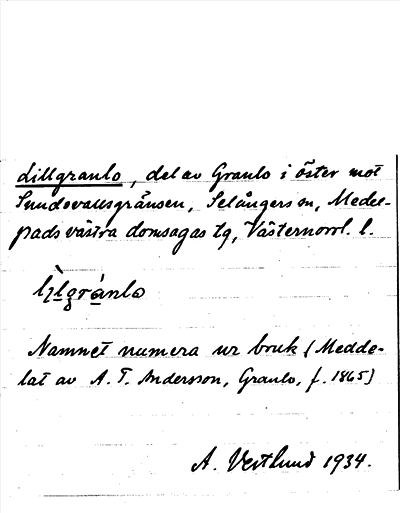 Lillgranlo, del av Granlo i öster mot
Sundsvallsgränsen, Selångers sn, Medel-
pads västra domsagas tg, Västernorrl. l.
Namnet numera ur bruk (Medde-
lat av A. T. Andersson, Granlo, f. 1865)
A. Vestlund 1934.